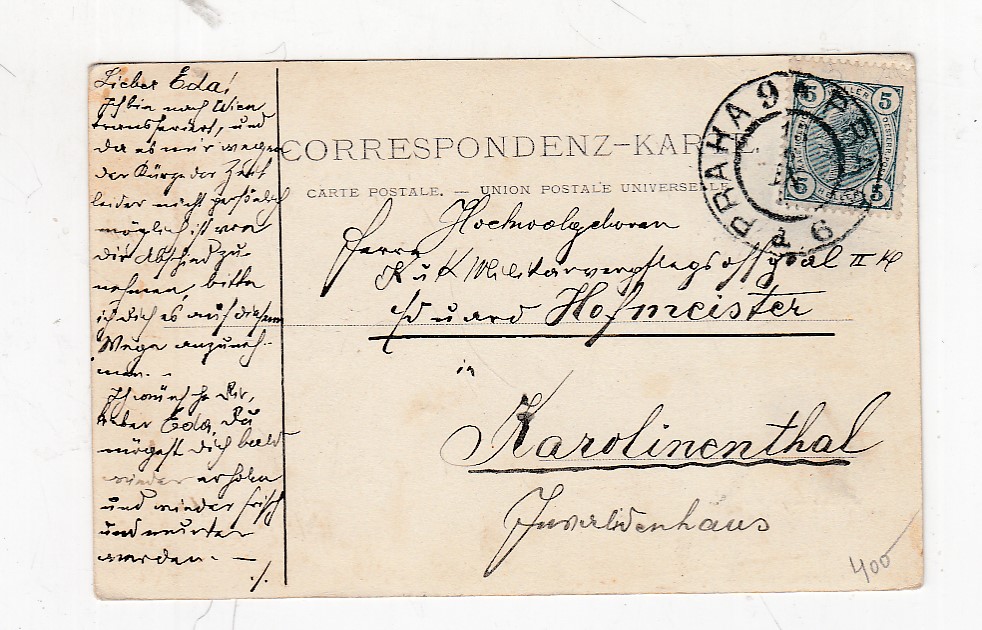 Lieber Eda!
Ich bin nach Wien
transferiert, und
da es mir wegen
der Kürze der Zeit
leider nicht persönlich
möglich ist von
dir Abschied zu
nehmen, bitte
ich dich es auf diesem
Wege anzuneh-
men. -
Ich wünsche Dir,
lieber Eda, Du
mögest Dich bald
wieder erholen
und wieder frisch
und munter
werden. —
./.
CORRESPONDENZ-KARTE.
CARTE POSTALE. — UNION POSTALE UNIVERSELLE
Hochwolgeboren
Herrn
K u K Militärverpflegsoffizial II Kl
Eduard Hofmeister
in
Karolinenthal
Invalidenhaus
400
5 HELLER 5
5 5
PRAHA 9 PRAG 9